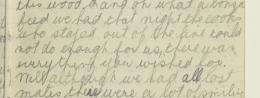 this wood, & and oh what a bonza
feed we had that night the cooks
who stayed out of the line could
not do enough for us, there was
everything you wished for.
Well although we had all lost
mates, there were a lot of smiling